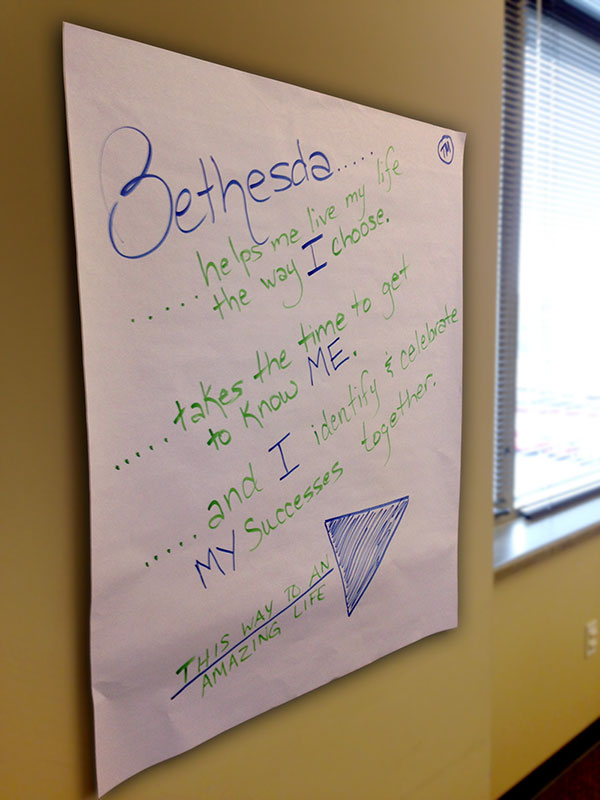 Bethesda..... TM
..... helps me live my life
the way I choose.
..... takes the time to get
to know ME.
..... and I identify & celebrate
MY Successes together.
THIS WAY TO AN
AMAZING LIFE